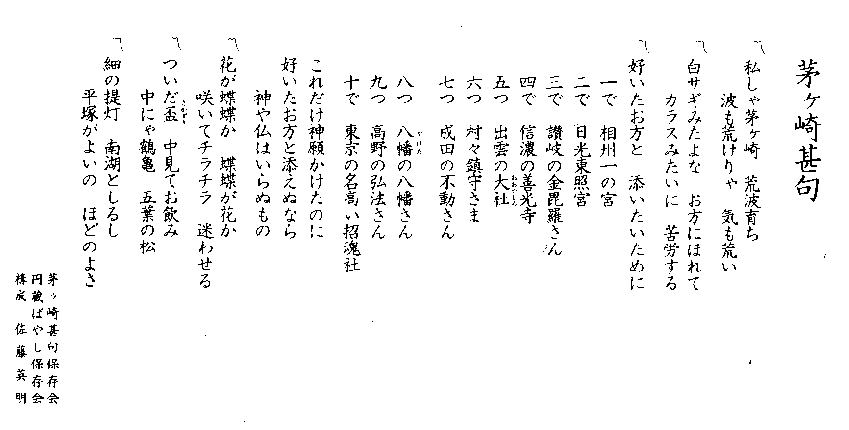 茅ヶ崎甚句
〽私しゃ茅ヶ崎 荒波育ち
波も荒けりゃ 気も荒い
〽白サギみたよな お方にほれて
カラスみたいに 苦労する
〽好いたお方と 添いたいために
一で 相州一の宮
二で 日光東照宮
三で 讃岐の金毘羅さん
四で 信濃の善光寺
五つ 出雲の大社
六つ 村々鎮守さま
七つ 成田の不動さん
八つ 八幡の八幡さん
九つ 高野の弘法さん
十で 東京の名高い招魂社
これだけ神願かけたのに
好いたお方と添えぬなら
神や仏はいらぬもの
〽花が蝶蝶か 蝶蝶が花か
咲いてチラチラ 迷わせる
〽ついだ盃 中見てお飲み
中にゃ鶴亀 五葉の松
〽細の提灯 南湖としるし
平塚がよいの ほどのよさ
茅ヶ崎甚句保存会
円蔵ばやし保存会
構成 佐藤英明